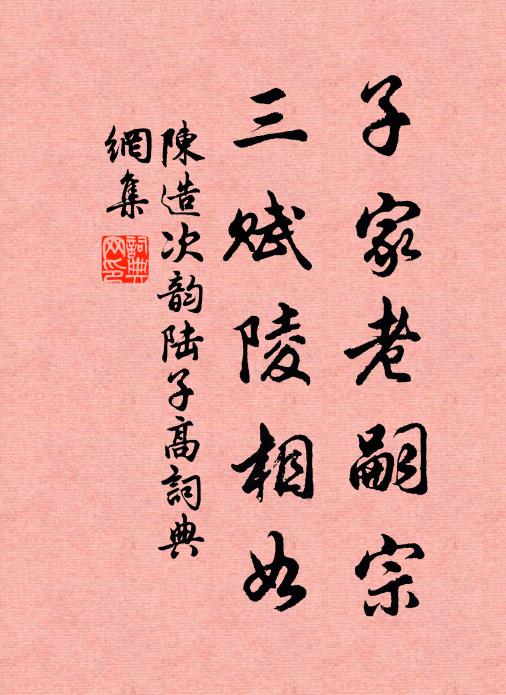 子家老嗣宗
三赋陵相如
陳造次韵陆子高詞典
網集
詞典
网印